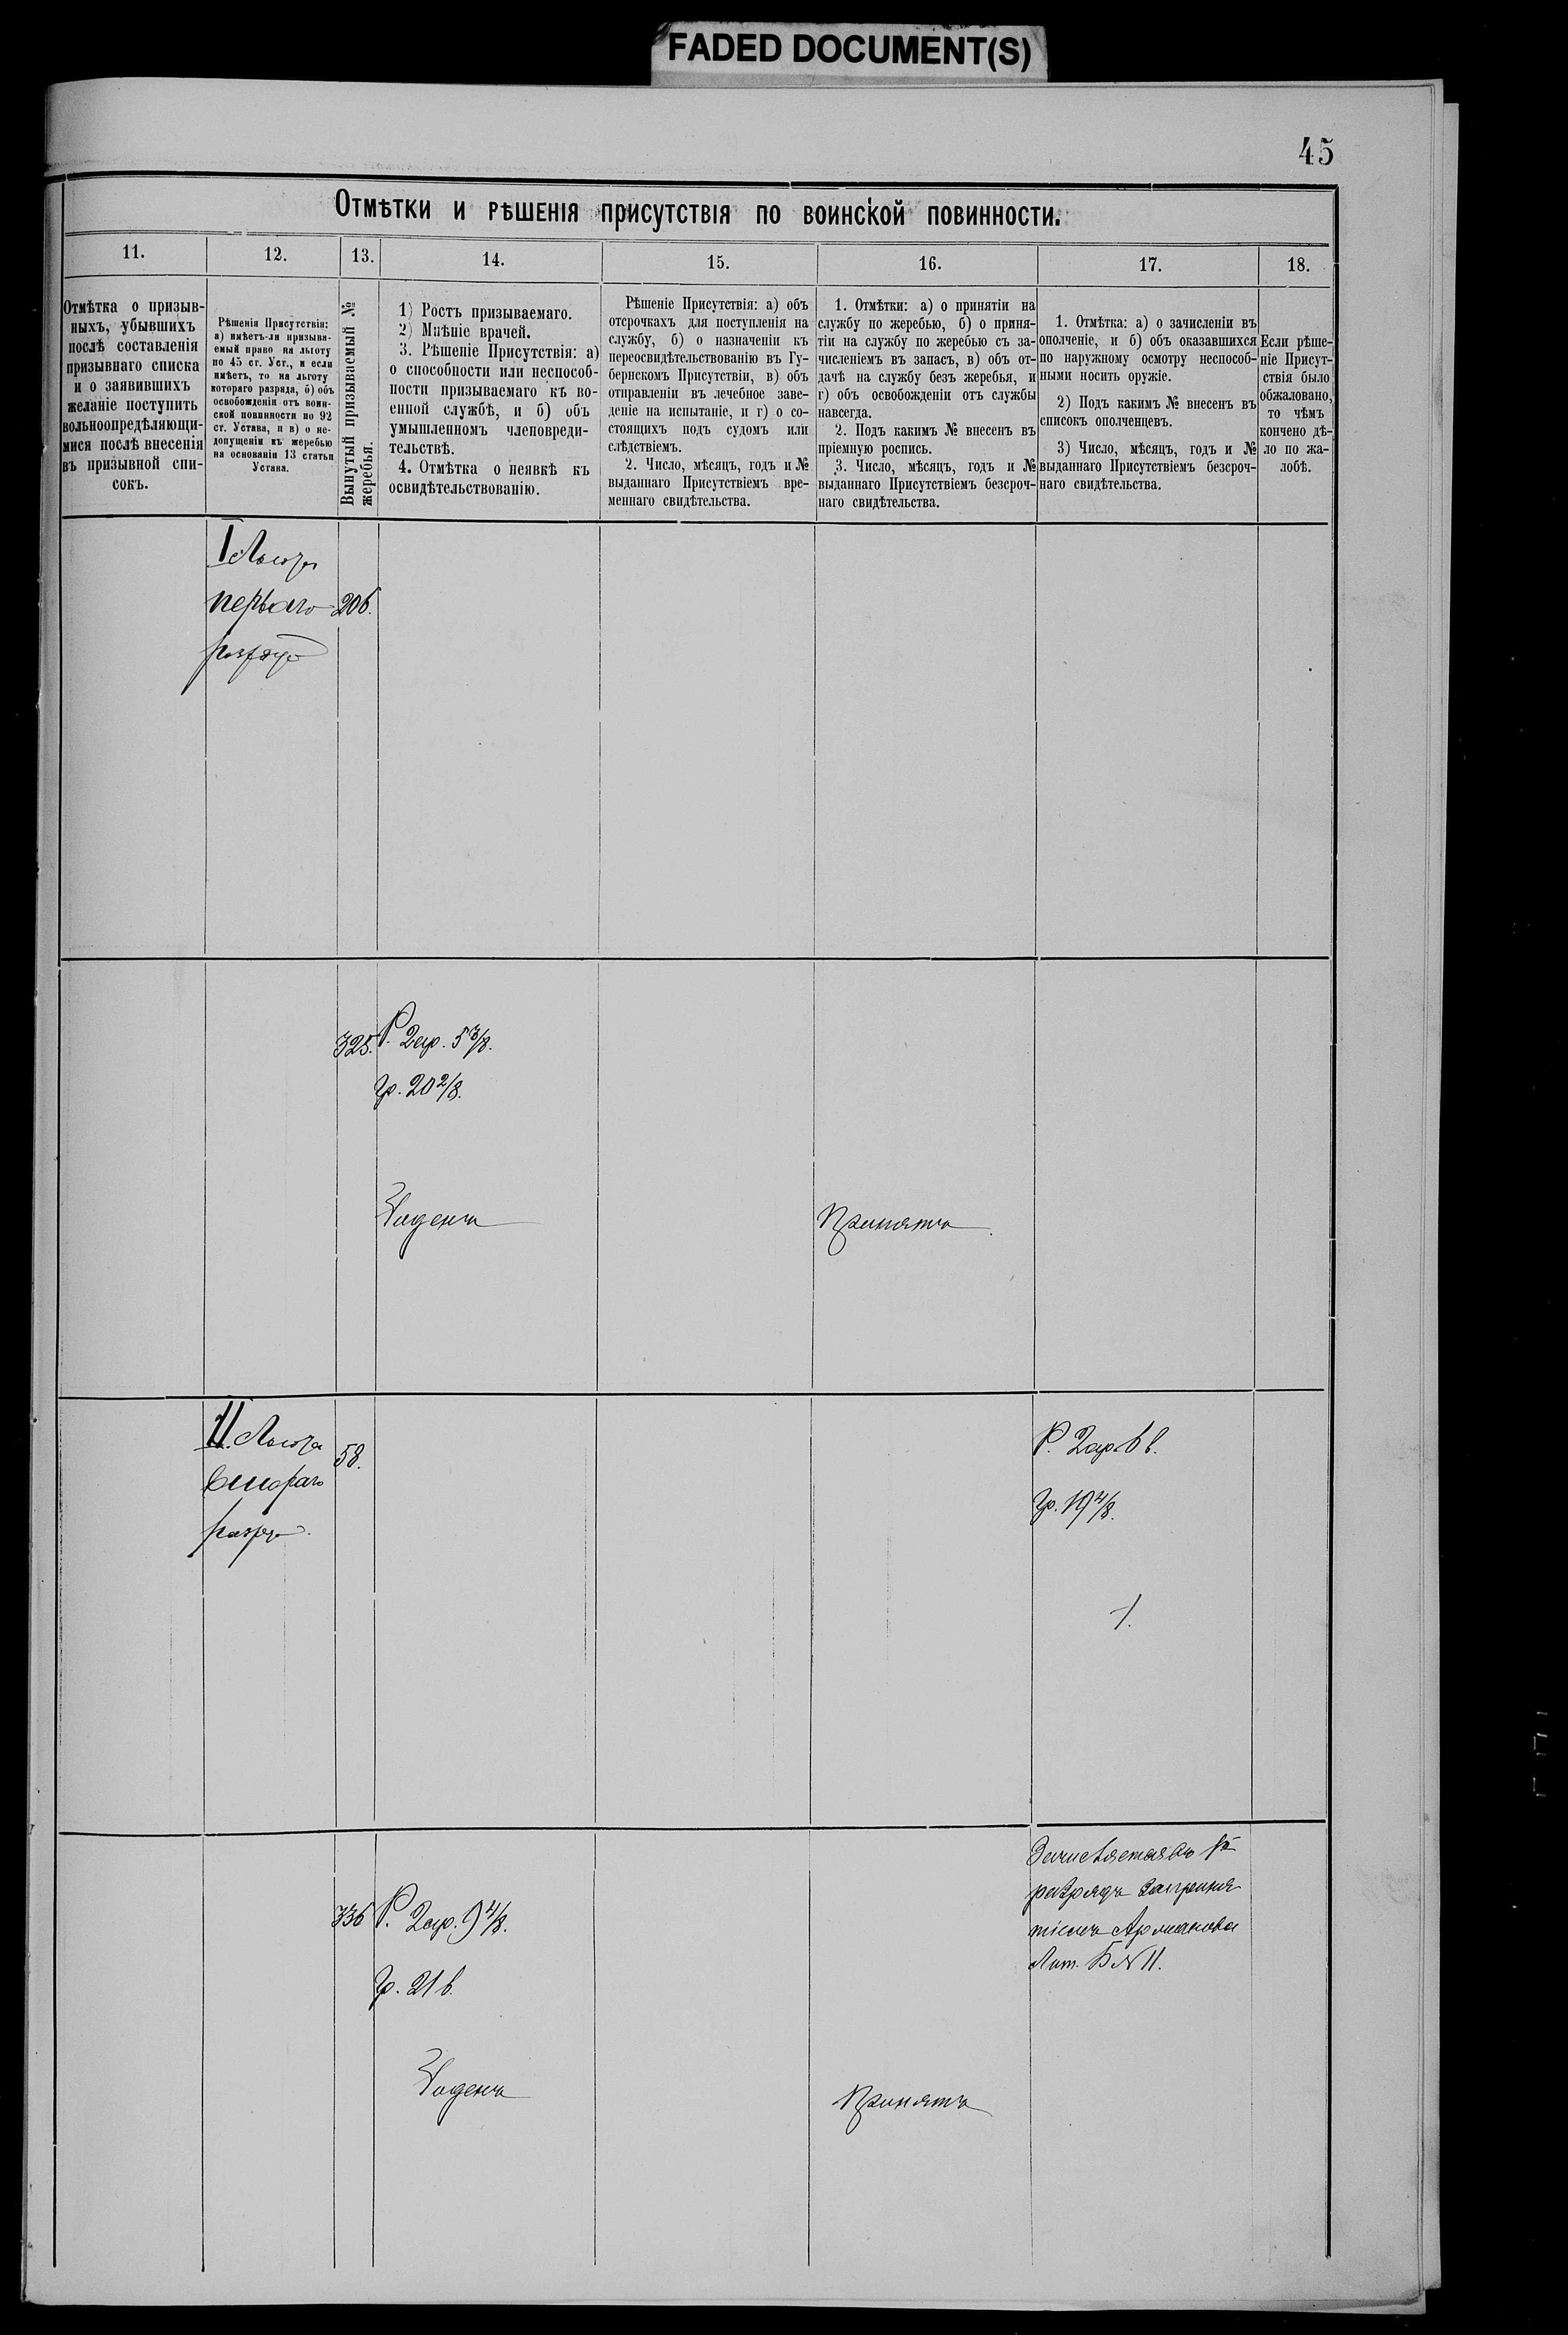 FADED DOCUMENT(S)
45
Отмѣтки и рѣшенія присутствія по воинской повинности.
11.
12.
13.
14.
15.
16.
17.
18.
Отмѣтка о призыв-
ныхъ, убывшихъ
послѣ составленія
призывнаго списка
и о заявившихъ
желаніе поступить
вольноопредѣляющи-
мися послѣ внесенія
въ призывной спи-
сокъ.
Рѣшенія Присутствія:
а) имѣетъ-ли призыва-
емый право на льготу
по 45 ст. Уст., и если
имѣетъ, то на льготу
котораго разряда, б) объ
освобожденіи отъ воин-
ской повинности по 92
ст. Устава, и в) о не-
допущеніи къ жеребью
на основаніи 13 статьи
Устава.
Вынутый призываемый №
жеребья.
1) Ростъ призываемаго.
2) Мнѣніе врачей.
3. Рѣшеніе Присутствія: а)
о способности или неспособ-
ности призываемаго къ во-
енной службѣ, и б) объ
умышленномъ членовреди-
тельствѣ.
4. Отмѣтка о неявкѣ къ
освидѣтельствованію.
Рѣшеніе Присутствія: а) объ
отсрочкахъ для поступленія на
службу, б) о назначеніи къ
переосвидѣтельствованію въ Гу-
бернскомъ Присутствіи, в) объ
отправленіи въ лечебное заве-
деніе на испытаніе, и г) о со-
стоящихъ подъ судомъ или
слѣдствіемъ.
2. Число, мѣсяцъ, годъ и №
выданнаго Присутствіемъ вре-
меннаго свидѣтельства.
1. Отмѣтки: а) о принятіи на
службу по жеребью, б) о приня-
тіи на службу по жеребью съ за-
численіемъ въ запасъ, в) объ от-
дачѣ на службу безъ жеребья, и
г) объ освобожденіи отъ службы
навсегда.
2. Подъ какимъ № внесенъ въ
пріемную роспись.
3. Число, мѣсяцъ, годъ и №
выданнаго Присутствіемъ безсроч-
наго свидѣтельства.
1. Отмѣтка: а) о зачисленіи въ
ополченіе, и б) объ оказавшихся
по наружному осмотру неспособ-
ными носить оружіе.
2) Подъ какимъ № внесенъ въ
списокъ ополченцевъ.
3) Число, мѣсяцъ, годъ и №
выданнаго Присутствіемъ безсроч-
наго свидѣтельства.
Если рѣше-
ніе Присут-
ствія было
обжаловано,
то чѣмъ
кончено дѣ-
ло по жа-
лобѣ.
I Льгота
перваго
разряда
206.
325.
Р. 2ар. 5 3/8.
Гр. 20 2/8.
Годенъ
Принятъ
II. Льгота
втораго
разряда.
58.
Р. 2ар. 6 в.
Гр. 19 4/8.
336
Р. 2ар. 9 4/8.
Гр. 21 в.
Годенъ
Принятъ
Зачисляется во
разрядъ
Лит. Б № 11.